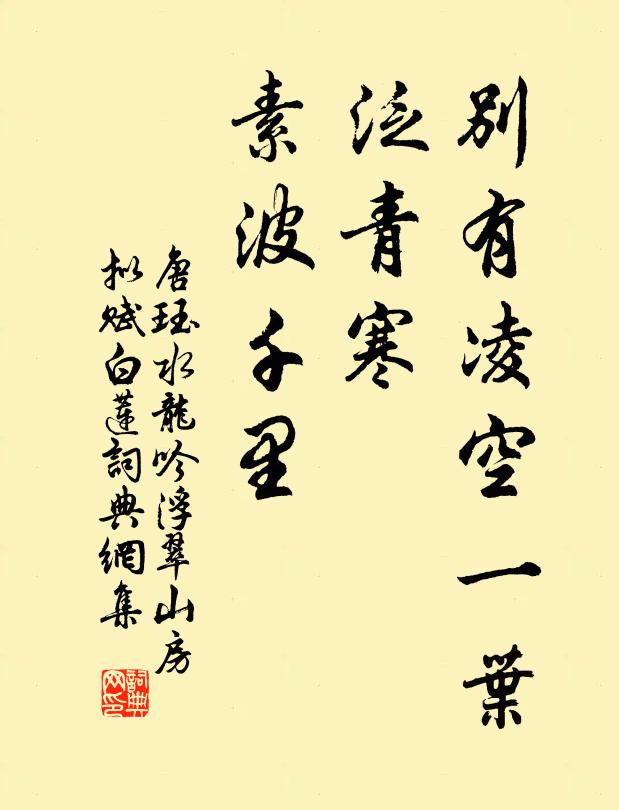 别有凌空一葉
泛青寒
素波千里
唐珏水龍吟浮翠山房
拟赋白蓮詞典網集
詞典
网印